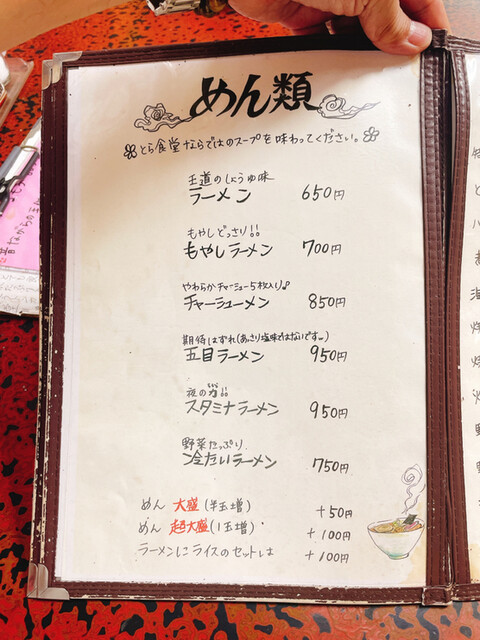 めん類
とら食堂ならではのスープを味わってください。
王道のしょうゆ味
ラーメン 650円
もやしどっさり!!
もやしラーメン 700円
やわらかチャーシュー5枚入り♪
チャーシューメン 850円
期待はずれ(あっさり塩味ではないです…)
五目ラーメン 950円
夜の
スタミナラーメン 950円
野菜たっぷり
冷たいラーメン 750円
めん 大盛(半玉増) +50円
めん 超大盛(1玉増) +100円
ラーメンにライスのセットは +100円